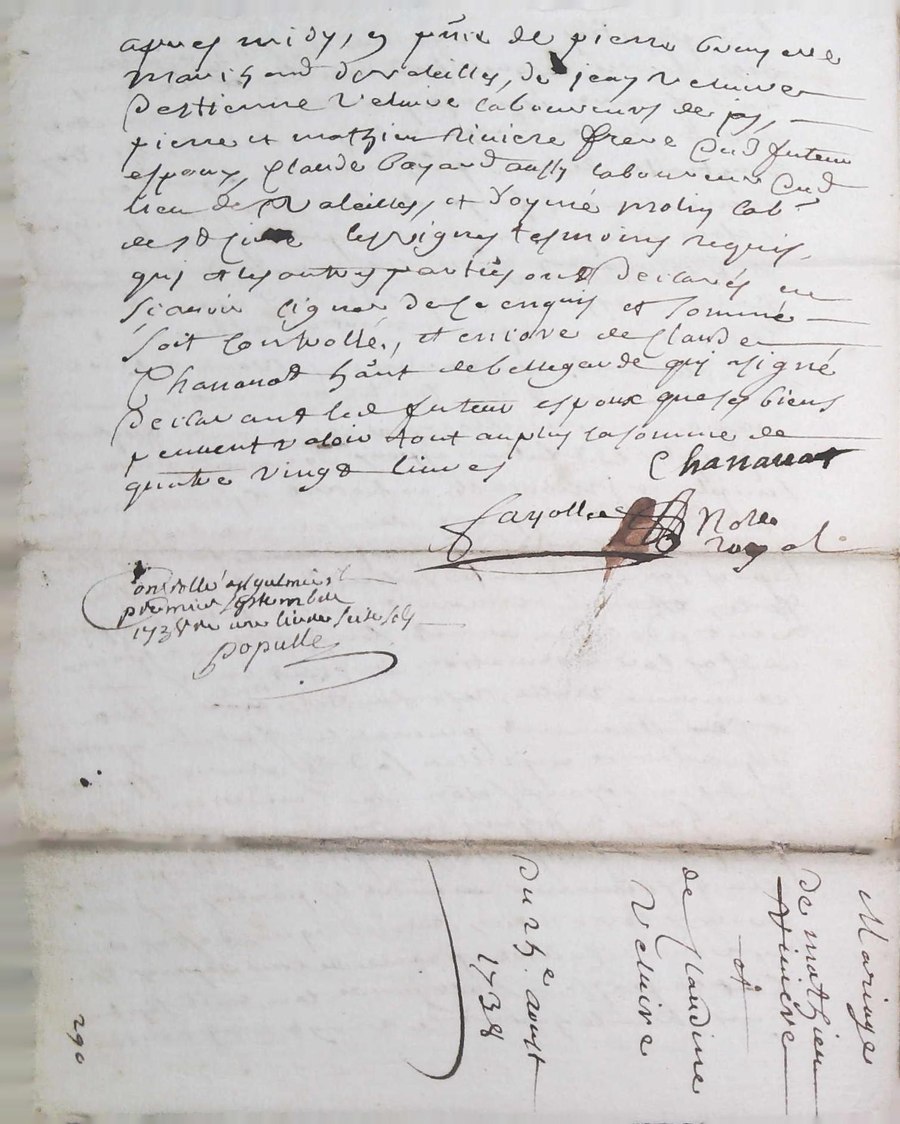 apres midy, en pnce de pierre
marchand de valeilles, de jean veluire
destienne veluire laboureurs de
pierre et mathieu riviere frere dud futeur
espoux, Claude bayard aussy laboureur dud
lieu de valeilles, et molin lab.r
de st les vignes tesmoins requis,
qui et les autres parties ont declarés ne
scavoir signer de ce enquis et sommé
soit controllé, et encore de Claude
Chanauat hânt de bellegarde qui a signé
declarant led futeur espoux que ses biens
peuvent valoir tout au plus la somme de
quatre vingt livres
Chanauat
fayolle Nore
royal
Controllé a st galmier le
premier septembre
1738 re une livre seise sols
populle
Mariage
de mathieu
riviere
et
de Claudine
Veluire
Du 25.e aoust
1738
290